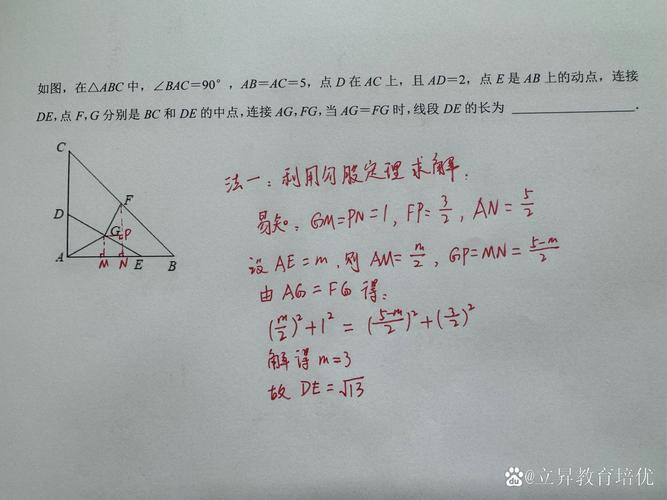 如图，在△ABC中，∠BAC=90°，AB=AC=5，点D在AC上，且AD=2，点E是AB上的动点，连接
DE，点F，G分别是BC和DE的中点，连接AG，FG，当AG=FG时，线段DE的长为 ____________.
C
F
D
G P
A M N E B
法一：利用勾股定理求解.
易知：GM=PN=1，FP=3/2，AN=5/2
设AE=m，则AM=m/2，GP=MN=(5-m)/2
由AG=FG得：
(m/2)²+1²=((5-m)/2)²+(3/2)²
解得m=3
故DE=√13
du @立昇教育培优